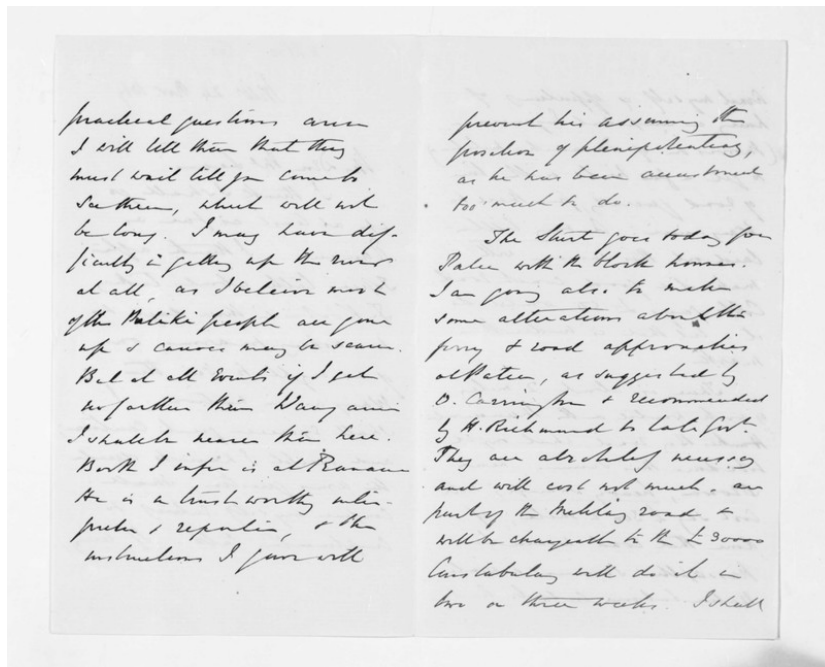 practical questions arise
I will tell them that they
must wait till you come to
see them, which will not
be long. I may have dif-
ficulty in getting up the river
at all, as I believe most
of the Putiki people are gone
up & canoes may be scarce.
But at all events if I get
no farther than Wanganui
I shall be nearer than here.
Booth I infer is at Ranana
He is a trustworthy inter-
preter & reporter, & the
instructions I gave will
prevent his assuming the
position of plenipotentiary,
as he has been accustomed
too much to do.
The Sturt goes today for
Patea with the block houses.
I am going also to make
some alterations about the
ferry & road approaches
at Patea, as suggested by
O. Carrington & recommended
by H. Richmond to late Govt.
They are absolutely necessary
and will cost not much. are
part of the military road &
will be chargeable to the £30000
Constabulary will do it in
two or three weeks. I shall